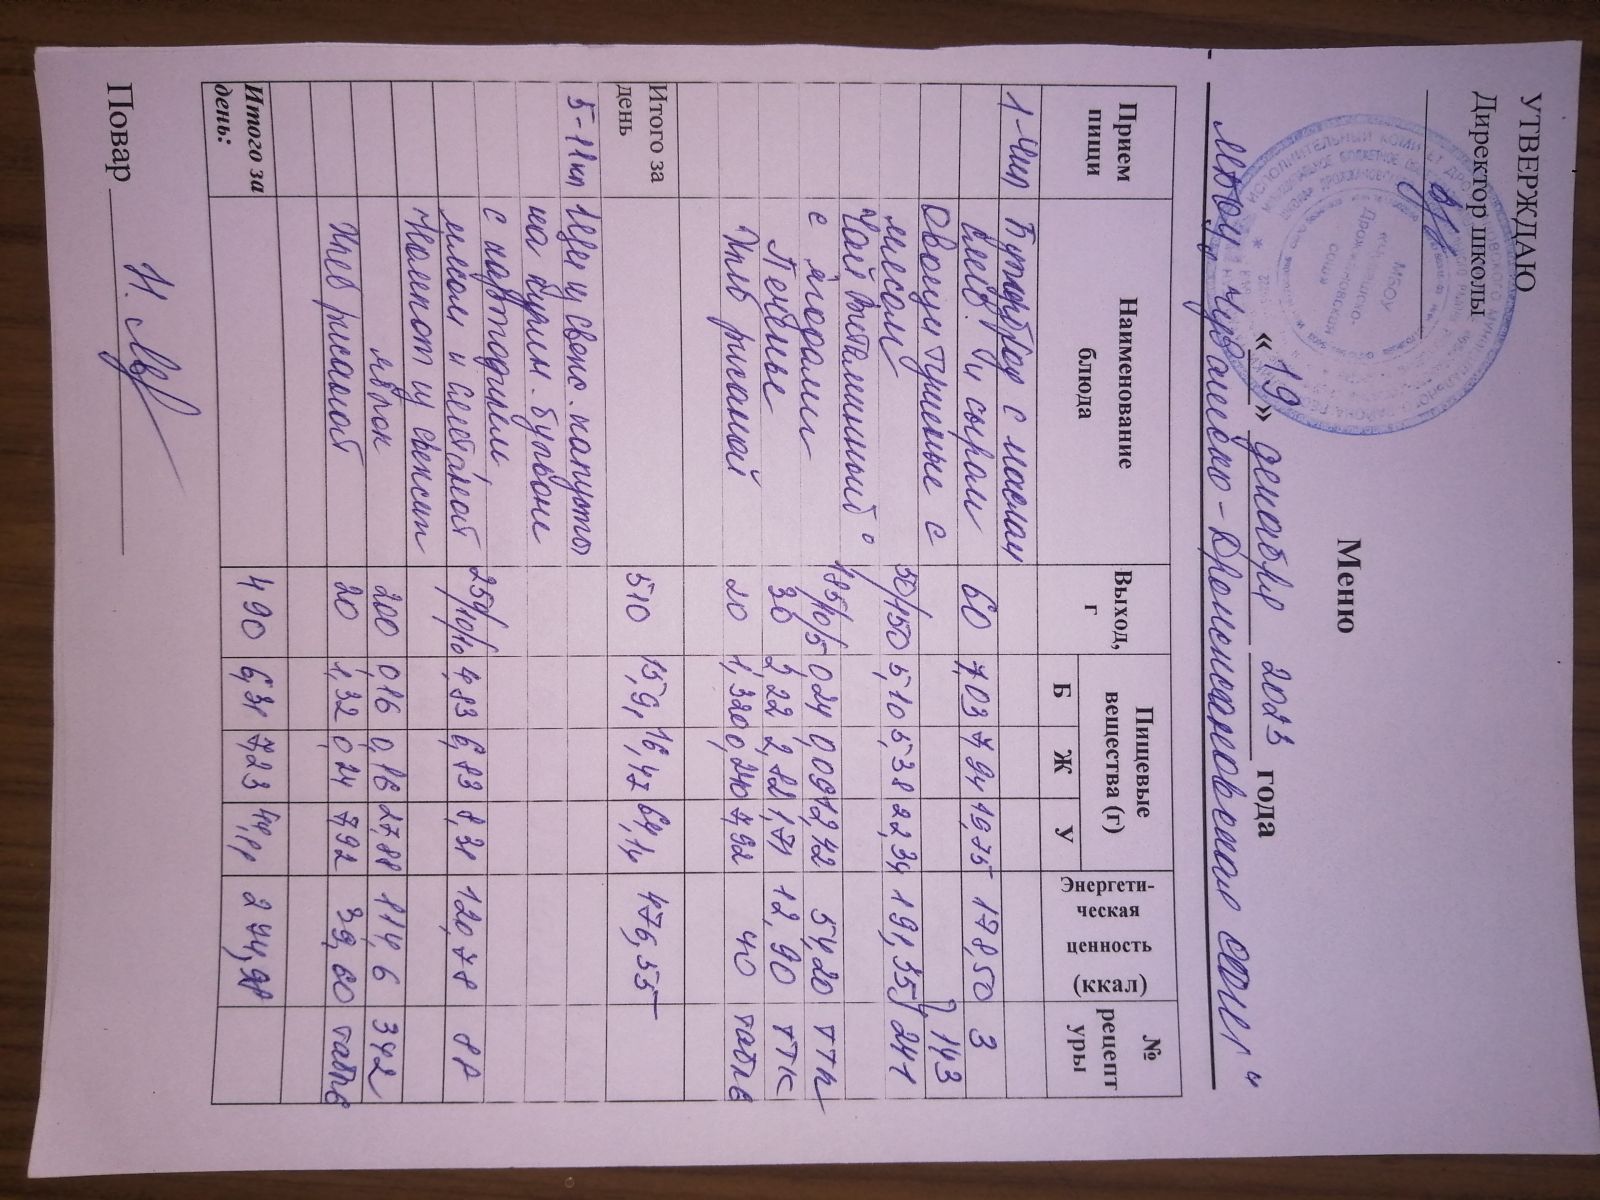 УТВЕРЖДАЮ
Директор школы
Меню
« 19 » декабря 2023 года
МБОУ "Чувашско - Дрожжановская СОШ"
Прием пищи | Наименование блюда | Выход, г | Пищевые вещества (г) | Энергети-ческая ценность (ккал) | № рецепт уры
Б | Ж | У
1-4кл Бутерброд с маслом
слив. и сыром 60 7,03 7,94 19,75 178,50 3
Овощи тушеные с 143
мясом 50/150 5,10 5,38 22,34 191,35 241
Чай витаминный
с ягодами 185/10/5 0,24 0,09 12,42 54,20 ттк
Печенье 30 2,22 2,82 1,71 12,90 ттк
Хлеб ржаной 20 1,32 0,240 7,92 40
Итого за день 510 15,91 16,47 64,14 476,55
5-11кл Щи из свеж. капусты
на курин. бульоне
с картофелем
мясом и сметаной 250/10/10 4,83 6,83 8,31 120,78 88
Компот из свежих
яблок 200 0,16 0,16 27,88 114,6 342
Хлеб ржаной 20 1,32 0,24 7,92 39,60
Итого за день: 490 6,31 7,23 44,11 274,98
Повар